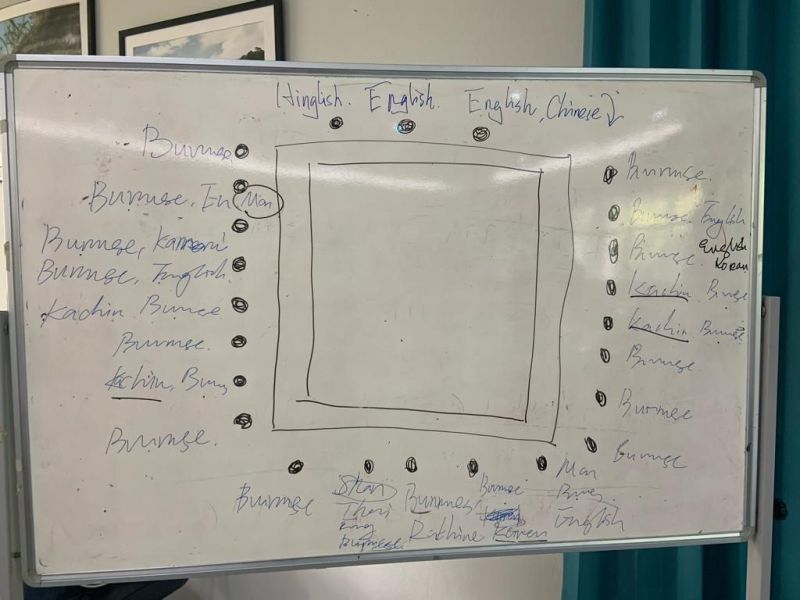 Hinglish. English. English, Chinese
Burmse
Burmese, En Mon
Burmese, Kareni
Burmese, English
Kachin Burmse
Burmse.
Kachin, Burm
Burmse.
Burmse.
Burmse. English
Burmse. English
Korean
Kachin Burmse
Kachin Burmse
Burmse
Burmse
Burmse
Burmse
Shan
Thai
Burmese
Burmese
Rakhine
Burmse
Karen
Mon
English